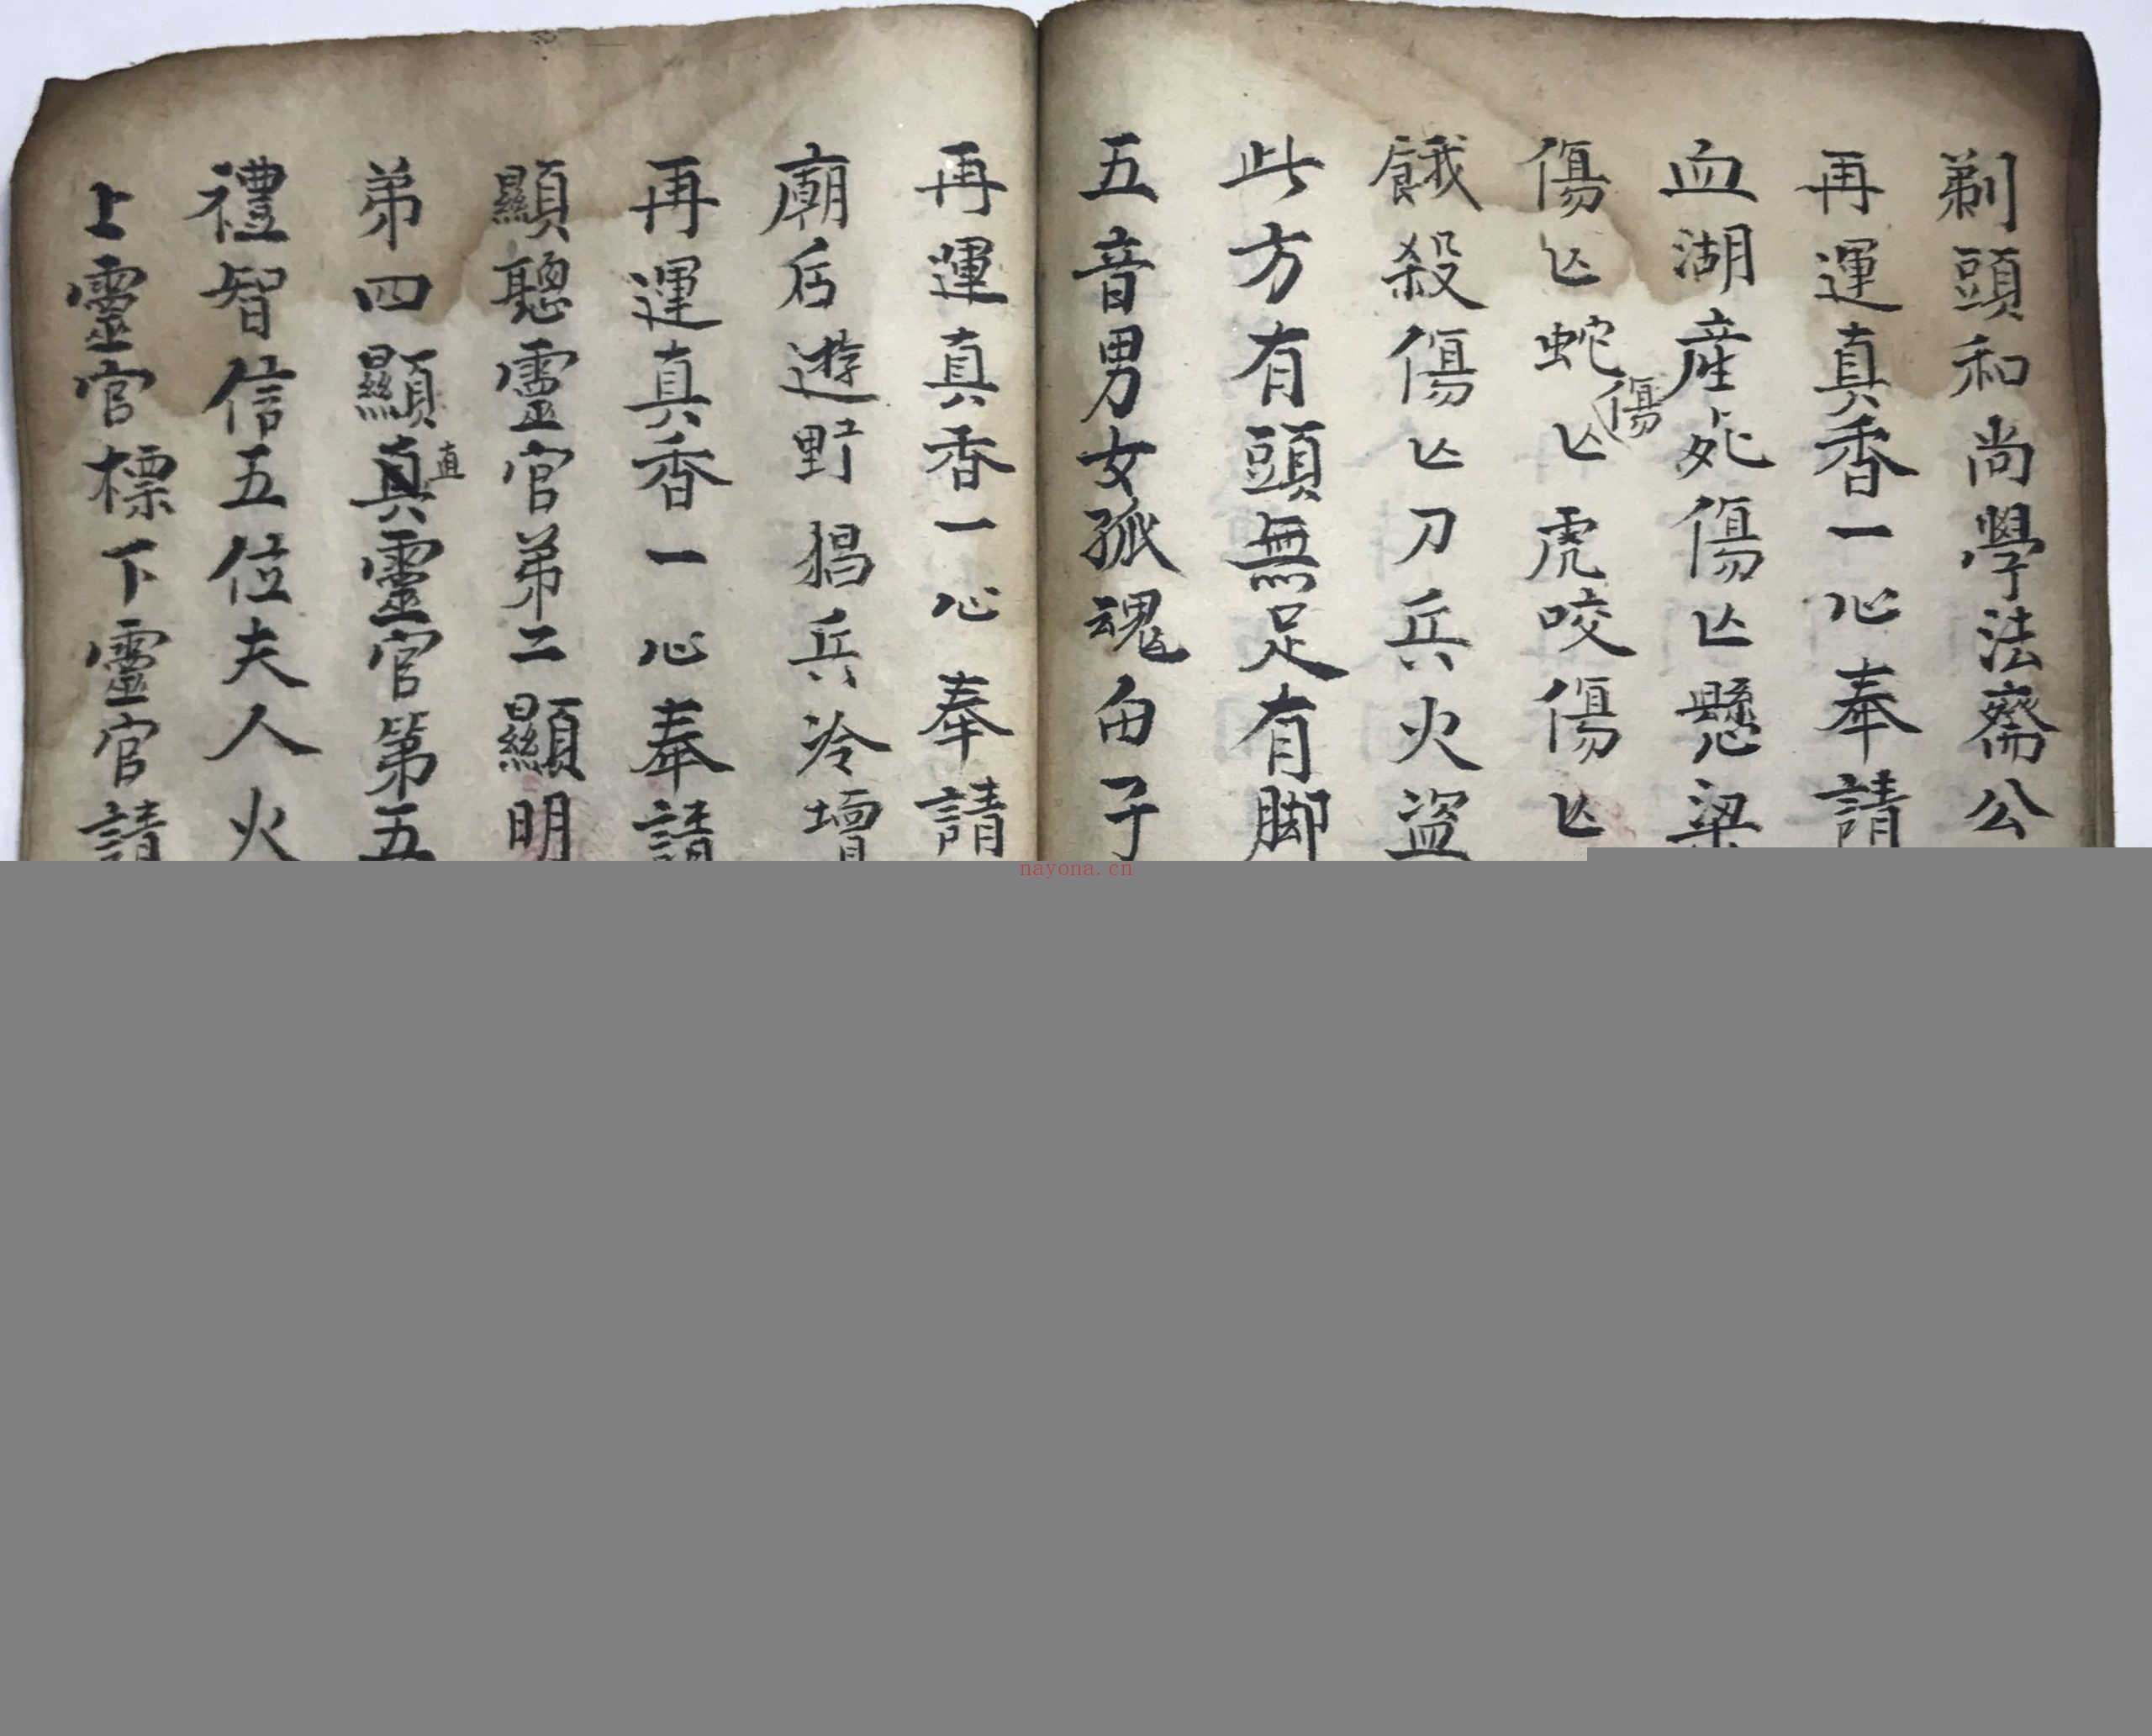 剃頭和尚學法齋公
再運真香一心奉請
血湖産死傷亡懸梁
傷亡蛇傷亡虎咬傷亡
餓殺傷亡刀兵火盜
此方有頭無足有脚
五音男女孤魂由子
再運真香一心奉請
廟后遊野猖兵冷壇
再運真香一心奉請
顯聰靈官弟二顯明
弟四顯直靈官第五
禮智信五位夫人火
上靈官標下靈官請
nayona.cn